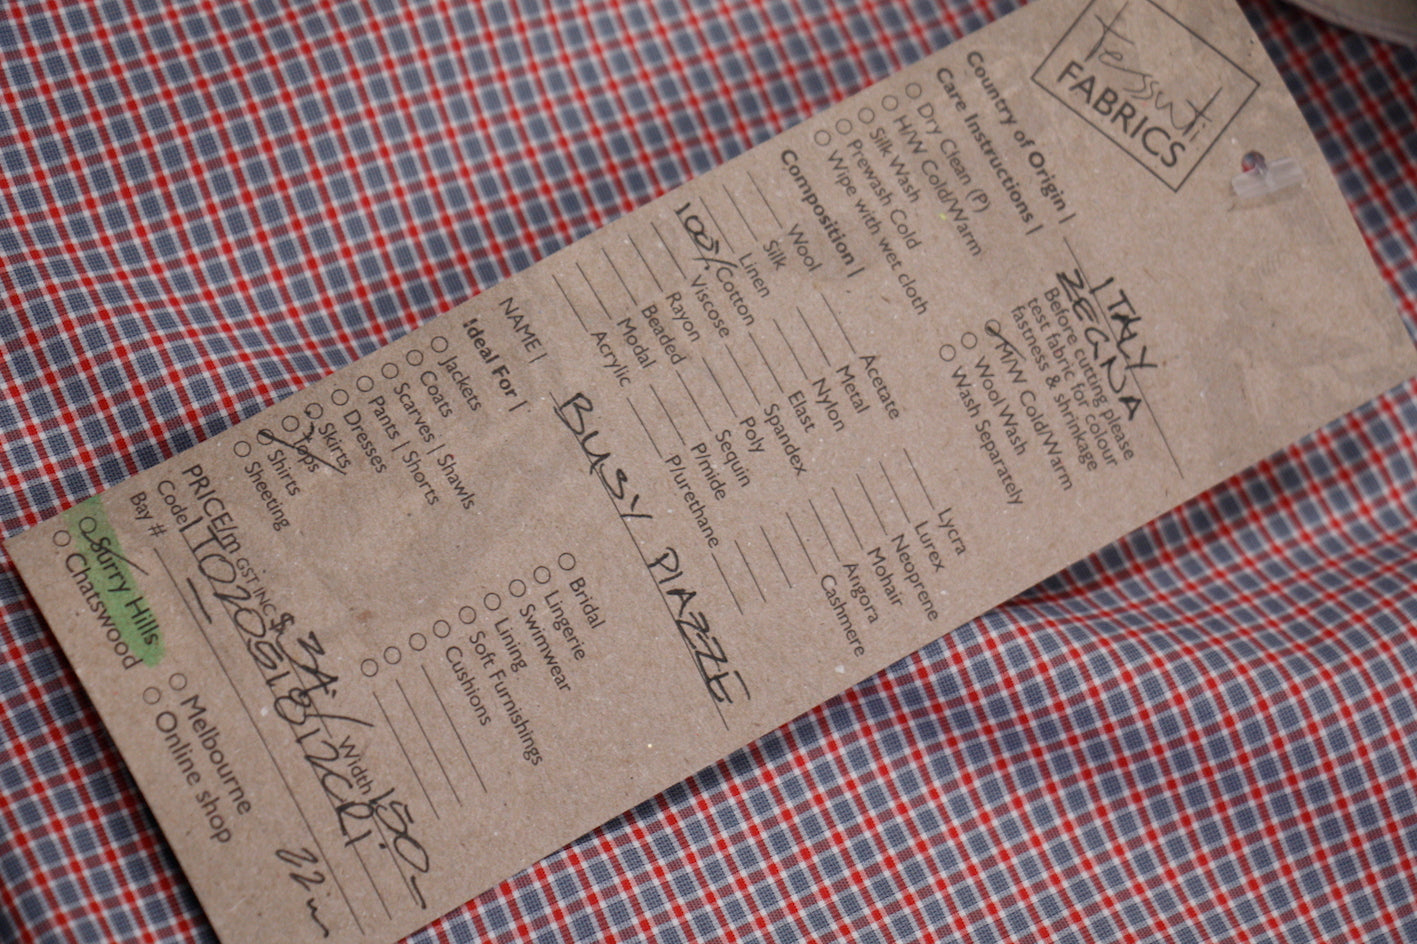 tessuti
FABRICS
Country of Origin | ITALY
ZEGNA
Care Instructions |
Before cutting please
test fabric for colour
fastness & shrinkage
Dry Clean (P)
H/W Cold/Warm
Silk Wash
Prewash Cold
Wipe with wet cloth
M/W Cold/Warm
Wool Wash
Wash Separately
Composition |
Wool
Silk
Linen
100% Cotton
Viscose
Rayon
Beaded
Modal
Acrylic
Acetate
Metal
Nylon
Elast
Spandex
Poly
Sequin
P/mide
P/urethane
Lycra
Lurex
Neoprene
Mohair
Angora
Cashmere
NAME | BUSY PIAZZE
Ideal For |
Jackets
Coats
Scarves | Shawls
Pants | Shorts
Dresses
Skirts
Tops
Shirts
Sheeting
Bridal
Lingerie
Swimwear
Lining
Soft Furnishings
Cushions
PRICE/m GST INC $ Width 150
Code
Bay #
Surry Hills
Chatswood
Melbourne
Online shop
22m